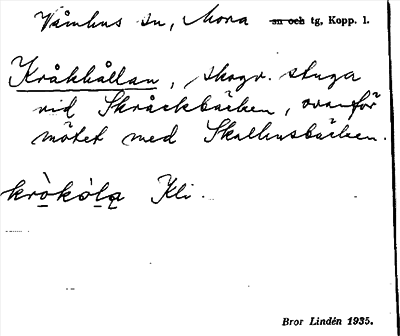 Våmhus sn, Mora sn och tg, Kopp. l.
Kråkhållan, skogv. stuga
vid Skråckbäcken, ovanför
mötet med Skallusbäcken.
kròkòla Kli.
Bror Lindén 1935.